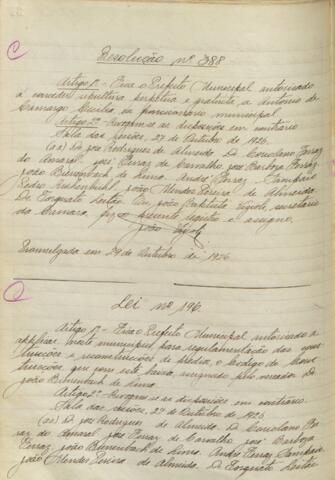 Resolução nº 388
Artigo 1º - Fica o Prefeito Municipal autorizado
a conceder sepultura perpetua e gratuita, a Antonio de
Camargo Cecilio, ex funccionario municipal.
Artigo 2º - Revogam-se as disposições em contrario
Sala das sessões, 27 de Outubro de 1926.
(aa) Dr. José Rodrigues de Almeida. Dr. Coriolano Ferraz
do Amaral. José Ferraz de Carvalho. José Barboza Ferraz.
João Bierrenbach de Lima. André Ferraz Sampaio
Pedro João Mendes Pereira de Almeida.
Dr. Torquato Leitão. Eu, João Baptista secretario
da Camara, fiz o presente registro e assigno.
João
Promulgada em 29 de Outubro de 1926
Lei nº 196.
Artigo 1º - Fica o Prefeito Municipal autorizado a
applicar neste municipio para regulamentação das cons-
trucções e reconstrucções de predios, o Codigo de Cons-
trucções, que com esta baixa, assignado pelo vereador Dr.
João Bierrenbach de Lima.
Artigo 2º - Revogam-se as disposições em contrario.
Sala das sessões, 27 de Outubro de 1926
(aa) Dr. José Rodrigues de Almeida. Dr. Coriolano Fer-
raz do Amaral. José Ferraz de Carvalho. José Barboza
Ferraz. João Bierrenbach de Lima. André Ferraz Sampaio.
João Mendes Pereira de Almeida. Dr. Torquato Leitão